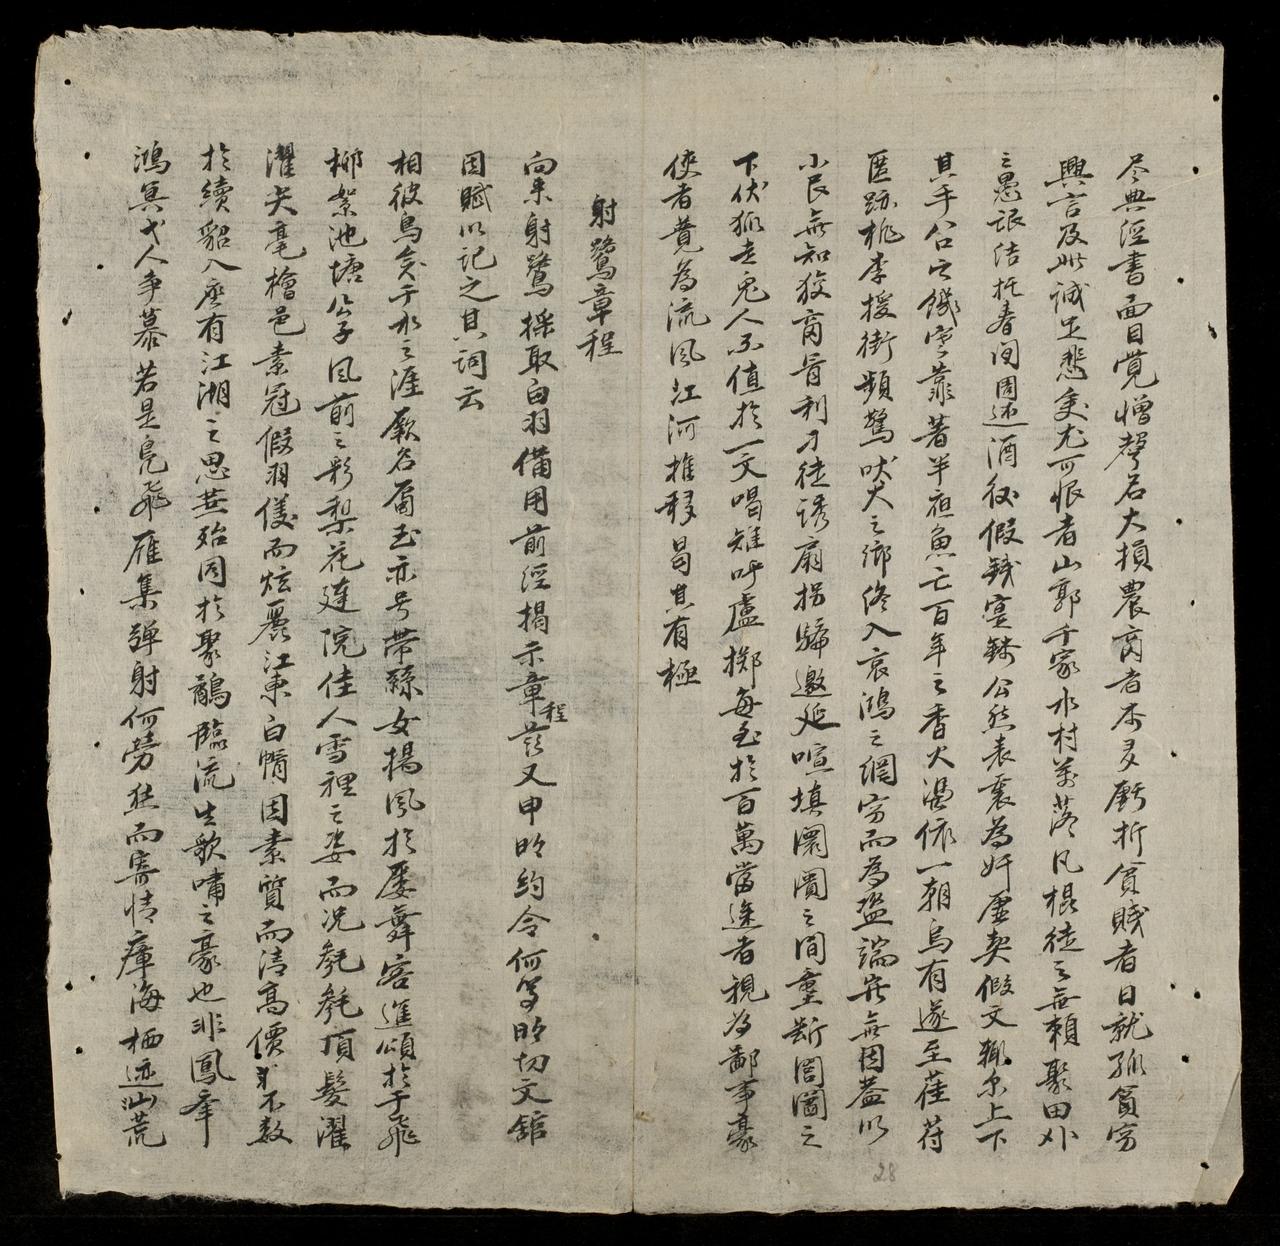 尽典経書面目覚憎聲名大損農商者本多虧折貧賤者日就孤貧窮
興言及此誠足悲矣尤可恨者山郭千家水村萬落凡棍徒之無頼聚田外
之愚氓結托春閭周还酒後假銭寔銖公然表裏為奸虚契假文輒尓上下
其手八口之饑寒靠著半夜魚亡百年之香火憑依一朝烏有遂至萑苻
匿跡桃李援街頻驚吠犬之鄉終入哀鴻之網窮而為盗端非無因蓋以
小民無知狡商罟利刁徒誘扇拐騙邀延喧填闤闠之間重斷罔罾之
下伏狐走兎人不值於一文喝雉呼盧擲每至於百萬當途者視為鄙事豪
俠者覚為流風江河推移曷其有極
射鷺章程
向来射鷺採取白羽備用前経揭示章程玆又申明約令何等明切文舘
因賦以記之其詞云
相彼鳥矣于水之涯厥名為玉亦号帯絲女揚風於屡舞客進頌於于飛
柳絮池塘公子風前之彩梨花連院佳人雪裡之姿而况毿毿頂髪濯
濯尖毫檜邑素冠假羽儀而炫麗江東白幘因素質而清高價或不数
於續貂入座有江湖之思無殆同於聚鷸臨流生歌嘯之豪也非鳳宰
鴻冥弋人争慕若是鳬飛雁集弾射何勞然而寄情瘴海栖迹汕荒
28